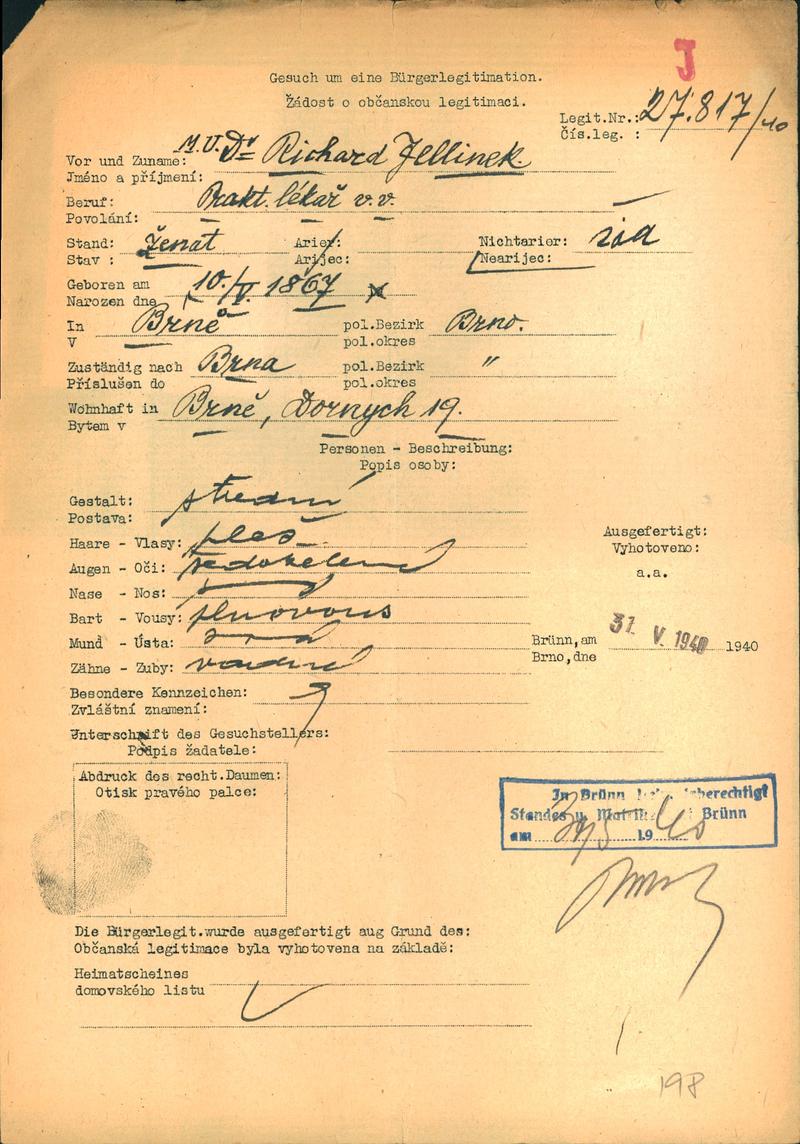 J
Gesuch um eine Bürgerlegitimation.
Žádost o občanskou legitimaci.
Legit.Nr.: 27.817/40
Čís.leg. :
Vor und Zuname: M.U.Dr Richard Jellinek.
Jméno a příjmení:
Beruf: Prakt. lékař v.v.
Povolání:
Stand: ženat Arier: Nichtarier: žid
Stav : Arijec: Nearijec:
Geboren am 10./V. 1867
Narozen dne
In Brně pol.Bezirk Brno.
V pol.okres
Zuständig nach Brna pol.Bezirk "
Příslušen do pol.okres
Wohnhaft in Brně, Dornych 19.
Bytem v
Personen - Beschreibung:
Popis osoby:
Gestalt: střední
Postava:
Haare - Vlasy: pleš
Augen - Oči: šedozelené
Nase - Nos:
Bart - Vousy: plnovous
Mund - Ústa:
Zähne - Zuby: vadné
Ausgefertigt:
Vyhotoveno:
a.a.
Brünn,am 31. V. 1940 1940
Brno,dne
Besondere Kennzeichen:
Zvláštní znamení:
Unterschrift des Gesuchstellers:
Podpis žadatele:
Abdruck des recht.Daumen:
Otisk pravého palce:
In Brünn
Standes u. Brünn
am 30/5 1940
Die Bürgerlegit.wurde ausgefertigt aug Grund des:
Občanská legitimace byla vyhotovena na základě:
Heimatscheines
domovského listu
198